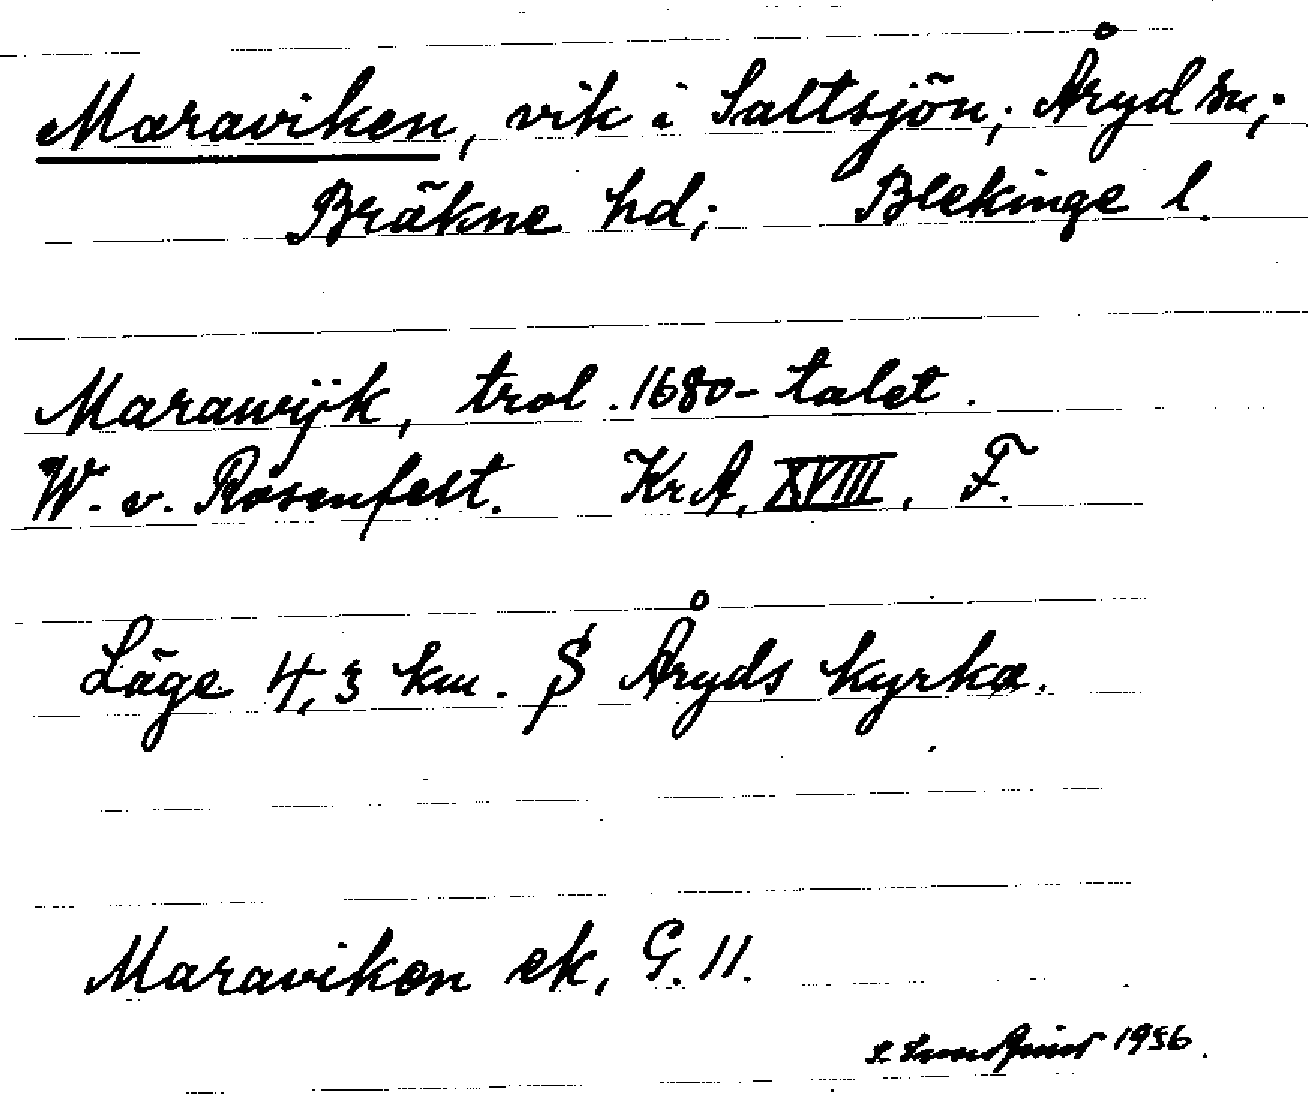 Maraviken, vik i Saltsjön; Åryd sn;
Bräkne hd; Blekinge l.
Marawijk, trol. 1680-talet.
W. v. Rosenfelt. KrA, XVIII, F.
Läge 4,3 km. S Åryds kyrka.
Maraviken ek, G. 11.
1956.